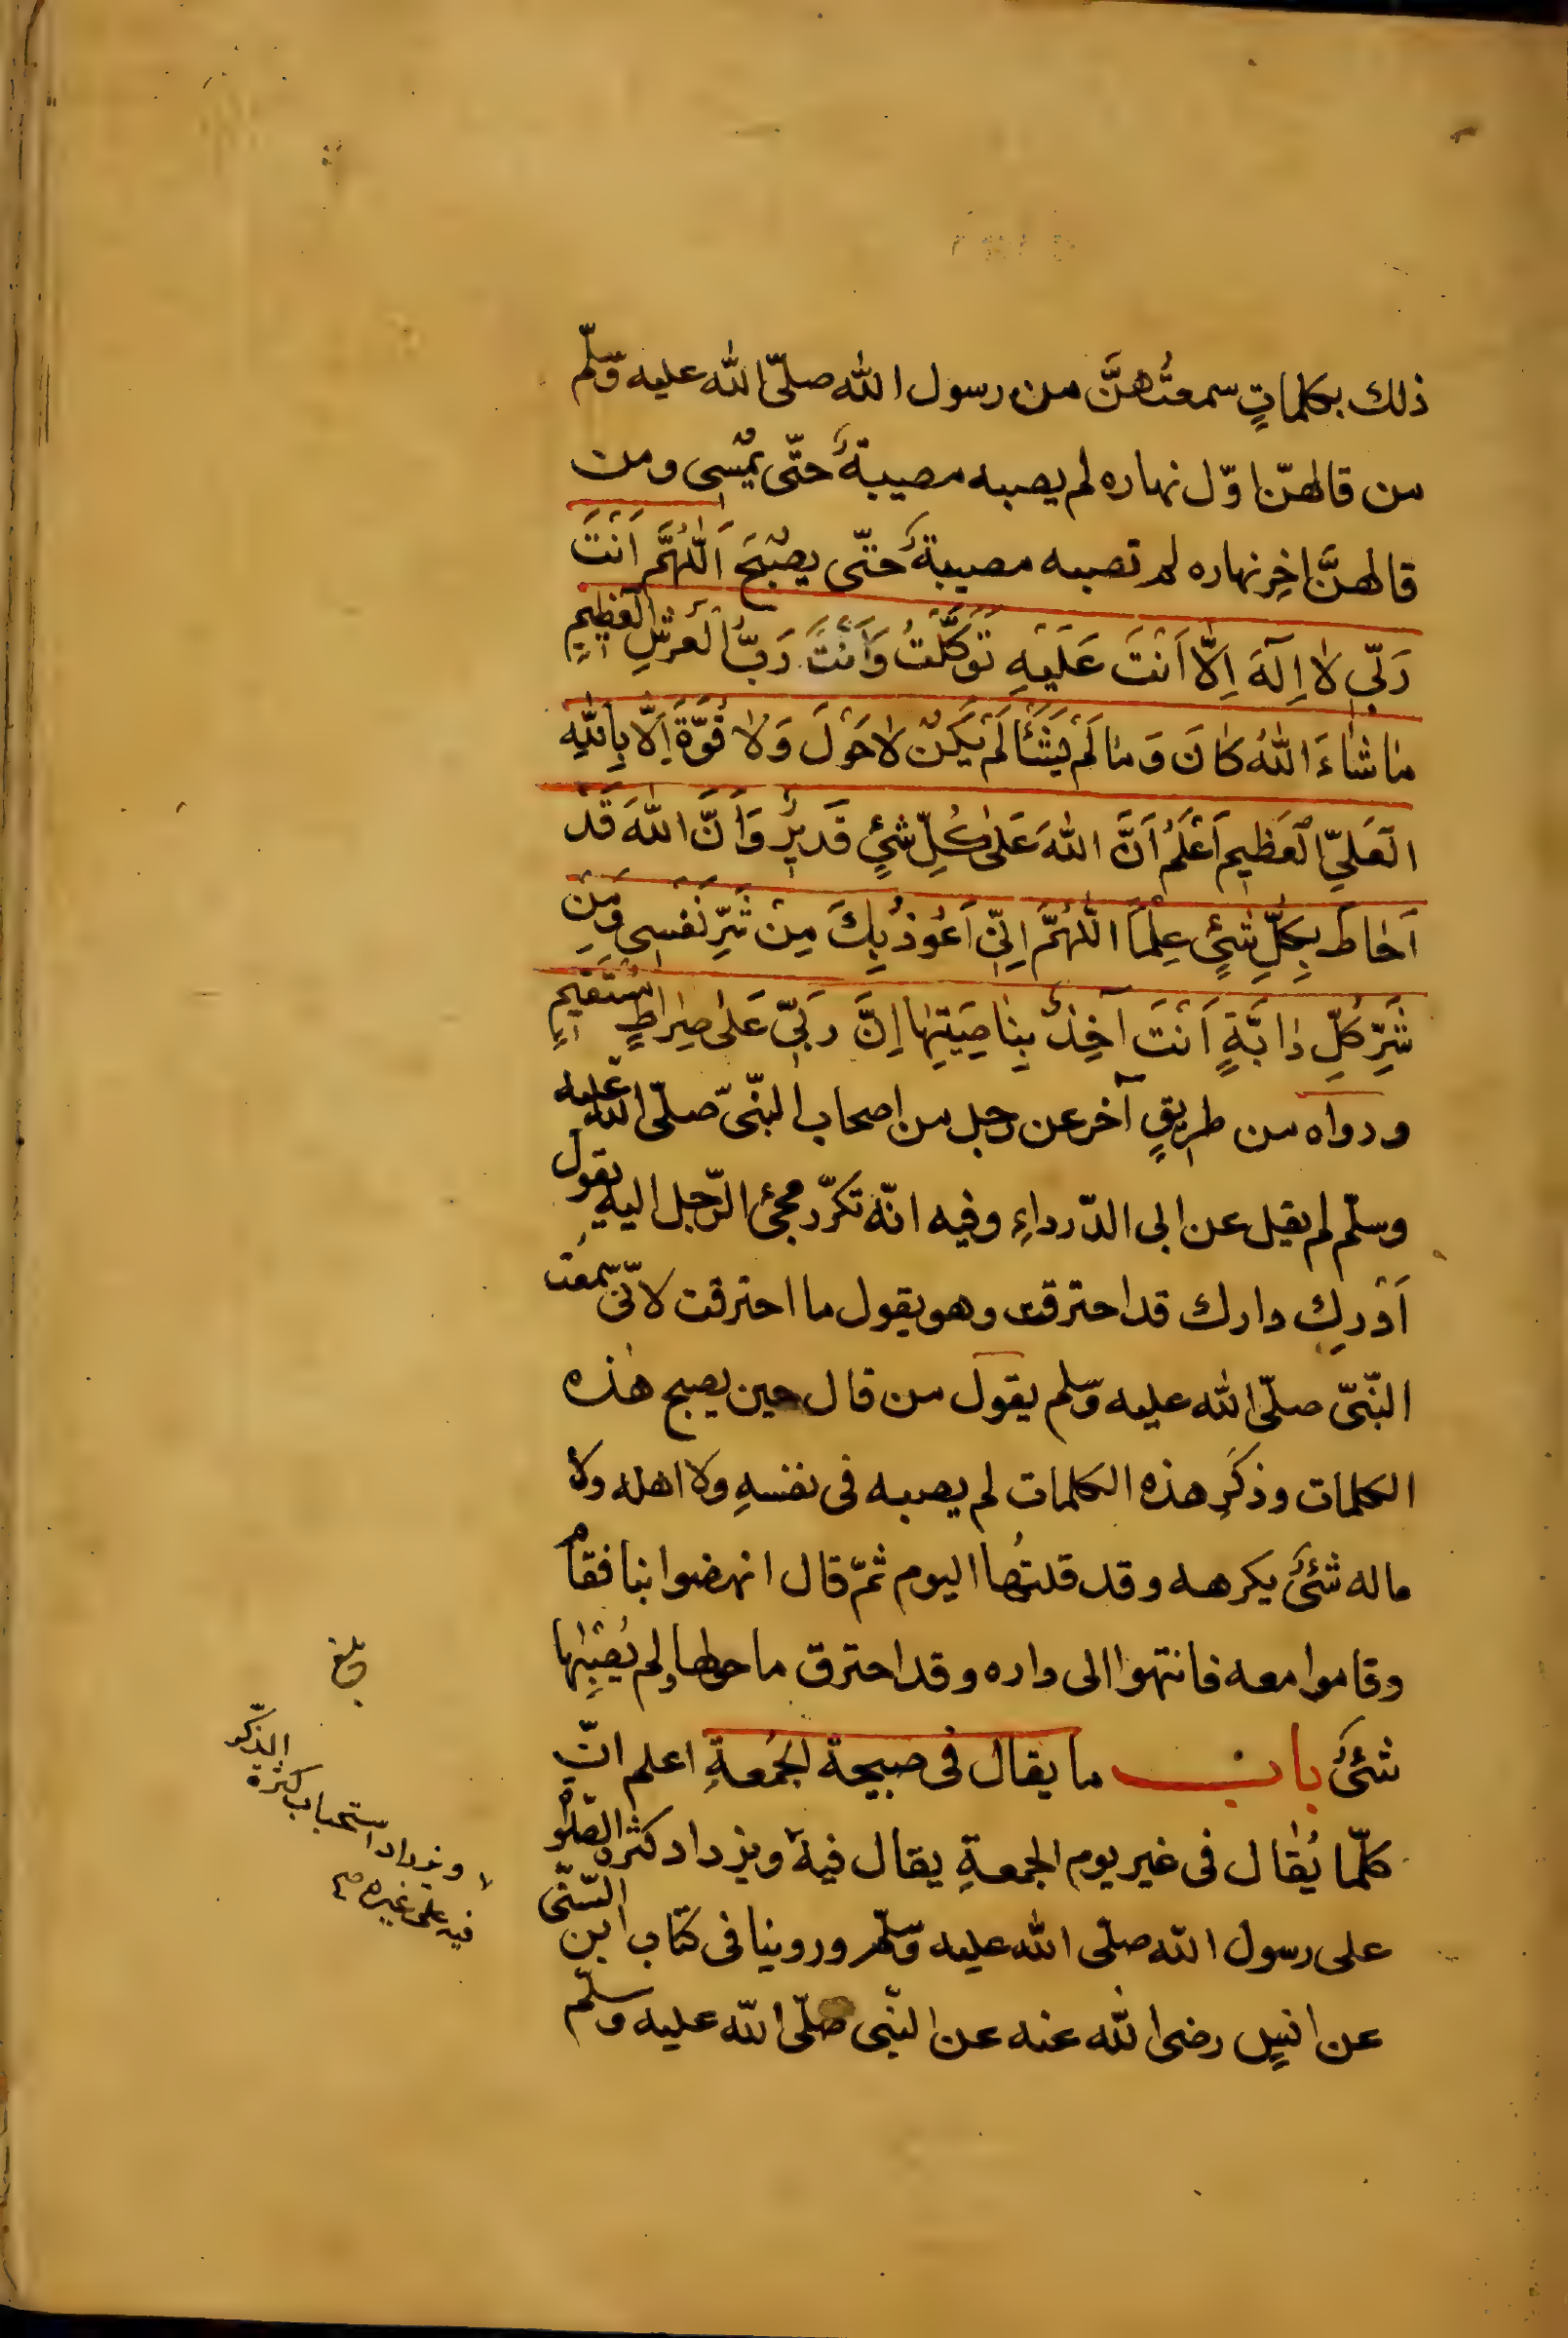 ذلك بكلماتٍ سمعتُهنَّ من رسول الله صلّى الله عليه وسّلّم
من قالهنّ اوّل نهاره لم يصبه مصيبةٌ حتّى يُمْسِى ومن
قالهنَّ اخِر نهاره لم تصبه مصيبةٌ حتّى يصْبِحَ اَللّٰهُمَّ اَنْتَ
رَبّىِ لا اِلٓهَ اِلّا اَنْتَ عَلَيْهِ تَوَكَّلْتُ وَاَنْتَ رَبُّ الْعَرْشِ الْعَظِيمِ
مٰا شٰاءَ اللّٰهُ كٰانَ وَمٰا لَمْ يَشَأْ لَمْ يَكُنْ لاحَوْلَ وَلٰا قُوَّةَ اِلّا بِاللّٰهِ
الْعَلِىّ الْعَظِيمِ اَعْلَمُ اَنَّ اللّٰهَ عَلٰى كُلِّ شَىْءٍ قَدِيرٌ وَاَنَّ اللّٰهَ قَدْ
اَحٰاطَ بِكُلِّ شَىْءٍ عِلْماً اللّٰهُمَّ اِنّىِ اَعُوذُ بِكَ مِنْ شَرِّ نَفْسِى وَمِنْ
شَرِّ كُلِّ دٰابَّةٍ اَنْتَ آخِذٌ بِنٰاصِيَتِهٰا اِنَّ رَبّىِ عَلٰى صِرٰاطٍ مُسْتَقِيمٍ
ورواه من طريقٍ آخر عن رجل من اصحاب النّبىّ صلّى الله عليه
وسلّم لم يقل عن ابى الدّرداءِ وفيه انّه تكرّر مجىء الرّجل اليهِ يقول
اَدْرِك دارك قد احترقت وهو يقول ما احترقت لانّى سمعت
النّبىّ صلّى الله عليه وسّلم يقول من قال حين يصبح هٰذه
الكلمات وذكَرِ هذه الكلمات لم يصبه فى نفسهِ ولا اهله ولا
ماله شىءٌ يكرهه وقد قلتُها اليوم ثمّ قال انهضوا بنا فقام
وقاموا معه فانتهوا الى داره وقد احترق ما حولها ولم يُصِبْهٰا
شىءٌ باب ما يقال فى صبيحة الجُمعةِ اعلم انّ
كلّما يُقٰال فى غير يوم الجمعةِ يقال فيهِ ويزداد كثرة الصّلوٰة
على رسول الله صلّى الله عليه وسّلّم وروينا فى كتاب ابن السّنّى
عن انسٍ رضى الله عنه عن النّبى صلّى الله عليه وسلّم
بلغ
ويزداد استحباب كثرة الذّكر
فيه على غيره صح